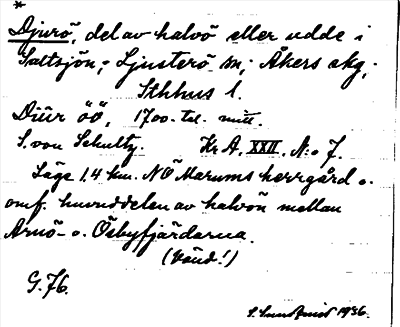 *
Djurö, del av halvö eller udde i
Saltsjön; Ljusterö sn; Åkers skg;
Sthlms l.
Diûr öö, 1700-tal. mitt.
S. von Schultz. Kr A. XXII. N:o 7.
Läge 1,4 km. NÖ Marums herrgård o.
omf. huvuddelen av halvön mellan
Arnö- o. Österbyfjärdarna.
(Vänd!)
G. 76.
1936.